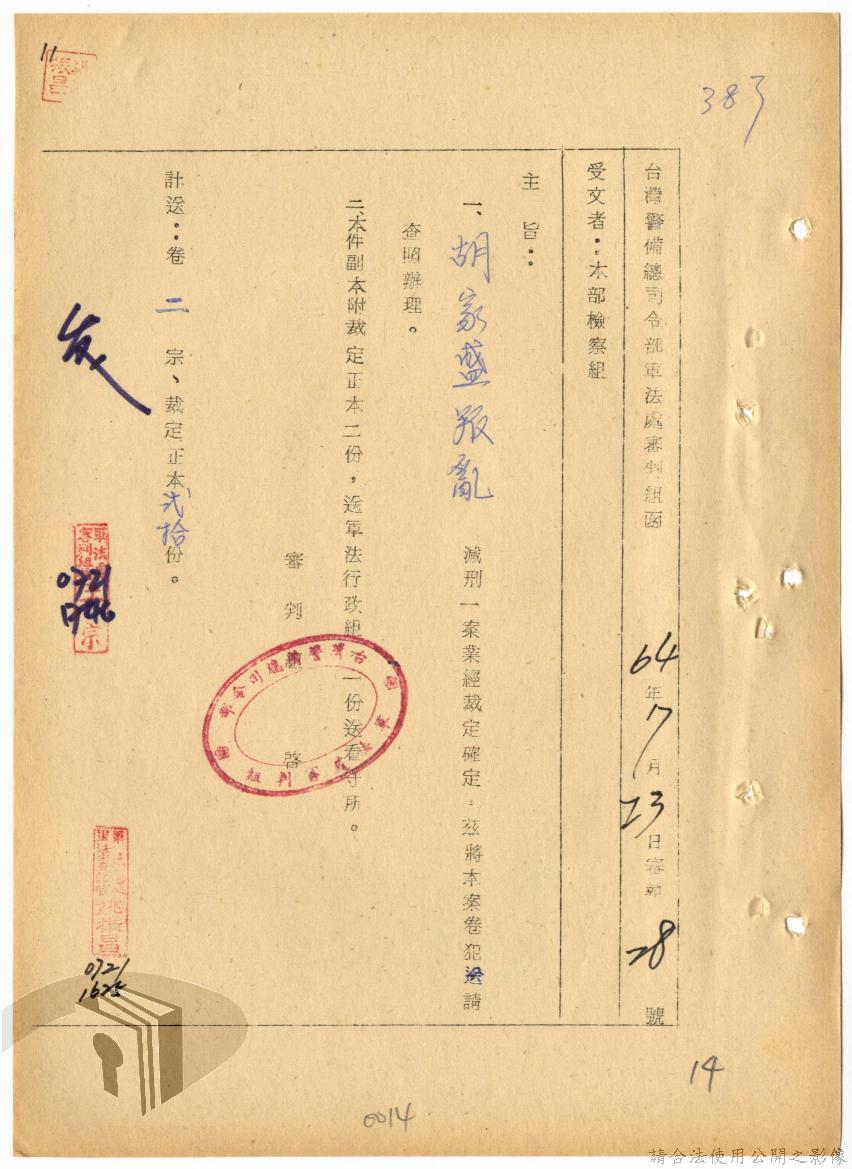 383
台灣警備總司令部軍法處審判組函 64年7月23日審執28號
受文者：本部檢察組
主旨：
一、胡家盛叛亂減刑一案業經裁定確定，茲將本案卷犯送請
查照辦理。
二、本件副本附裁定正本二份，送軍法行政組 一份送看守所。
審判組 啓
台灣警備總司令部
審判組
計送：卷二宗、裁定正本弍拾份。
發
軍法
審判組
宗
0721
1746
軍法處
姚振昌
0721
1625
11
張昌
14
0014
請合法使用公開之影像